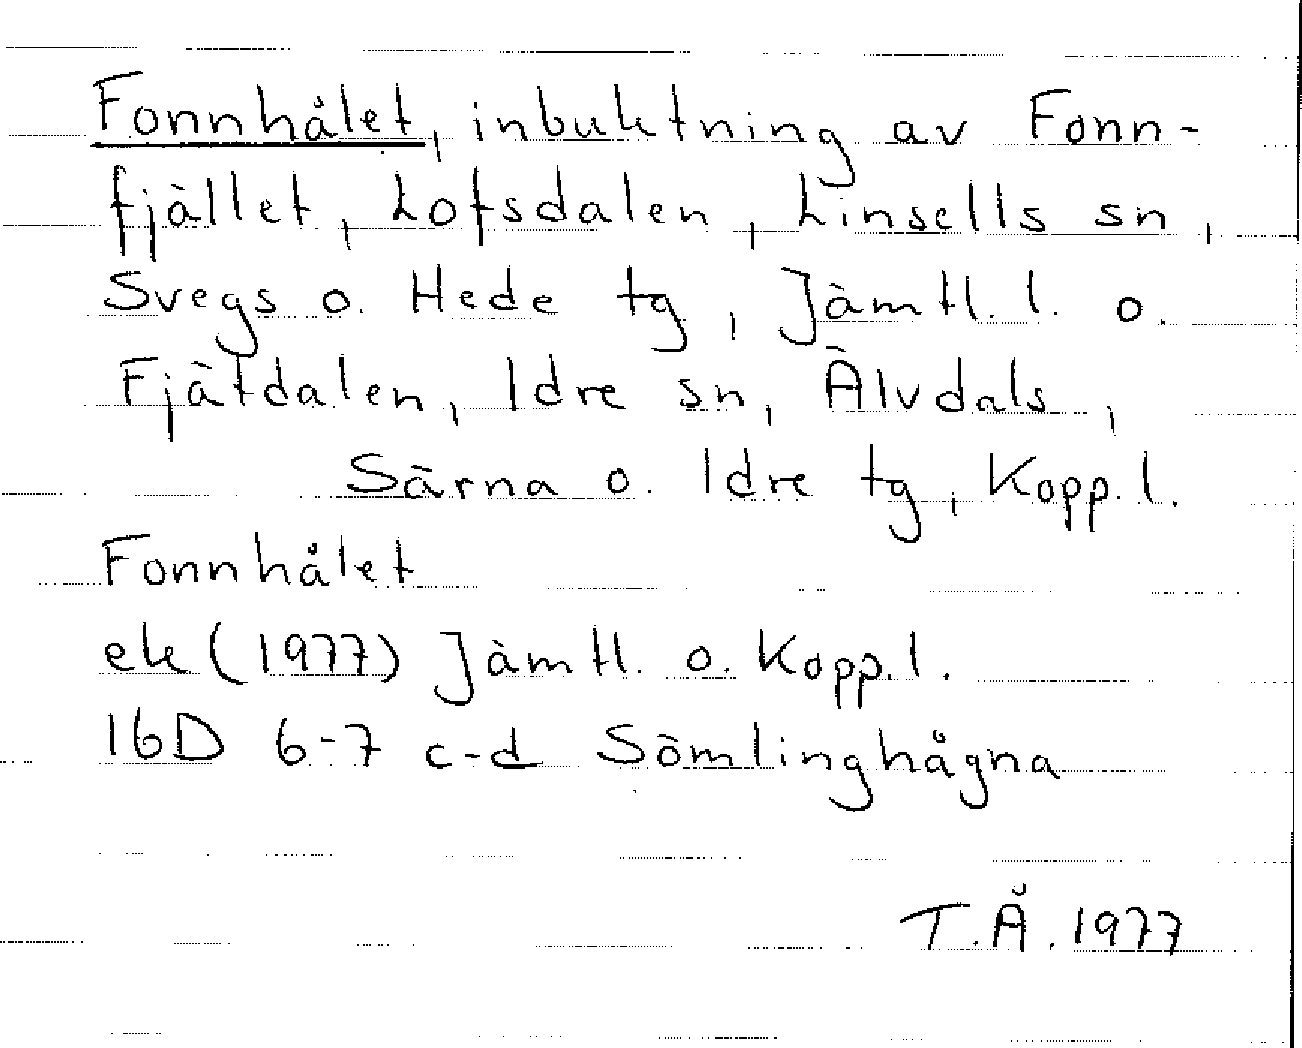 Fonnhålet, inbuktning av Fonn-
fjället, Lofsdalen, Linsells sn,
Svegs o. Hede tg, Jämtl. l. o.
Fjätdalen, Idre sn, Älvdals,
Särna o. Idre tg, Kopp. l.
Fonnhålet
ek (1977) Jämtl. o. Kopp. l.
16D 6-7 c-d Sömlinghågna
T.Å. 1977